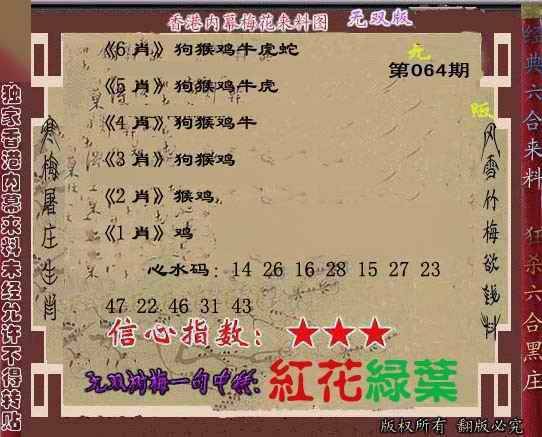 香港内幕梅花来料图 无双版
《6 肖》狗猴鸡牛虎蛇
无
第064期
《5 肖》狗猴鸡牛虎
版
《4 肖》狗猴鸡牛
《3 肖》狗猴鸡
《2 肖》猴鸡
《1 肖》鸡
心水码：14 26 16 28 15 27 23
47 22 46 31 43
信心指数：★★★
无双 梅一句中特:紅花綠葉
独家香港内幕来料未经允许不得转贴
寒梅屠庄生肖
风雪竹梅欲钱料
经典六合来料 狂杀六合黑庄
版权所有 翻版必究